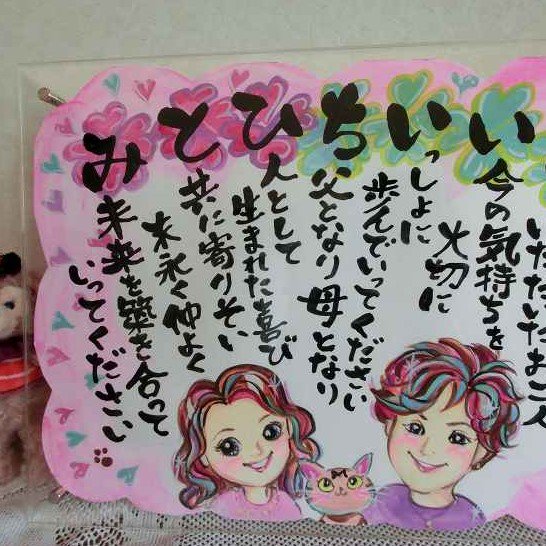 いただいたお二人
い今の気持ちを
大切に
いっしょに
歩んでいってください
ち父となり母となり
ひ人として
生まれた喜び
と共に寄りそい
末永く仲よく
み未来を築き合って
いってください